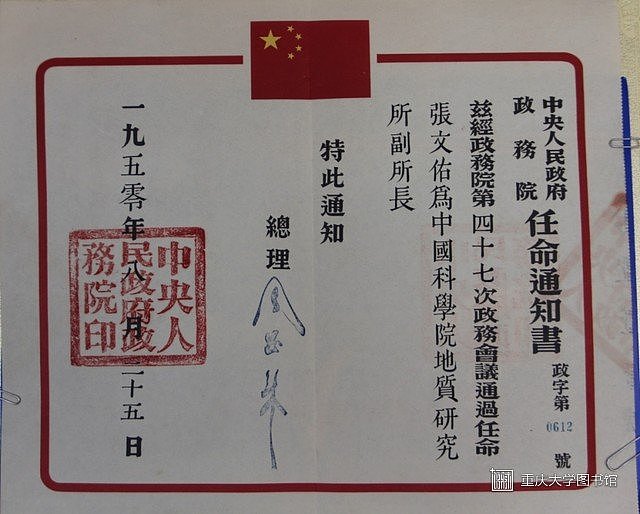 中央人民政府
政務院
任命通知書
政字第
0612
號
茲經政務院第四十七次政務會議通過任命
張文佑爲中國科學院地質研究
所副所長
特此通知
總理
周恩來
一九五零年八月二十五日
中央人
民政府政
務院印
重庆大学图书馆